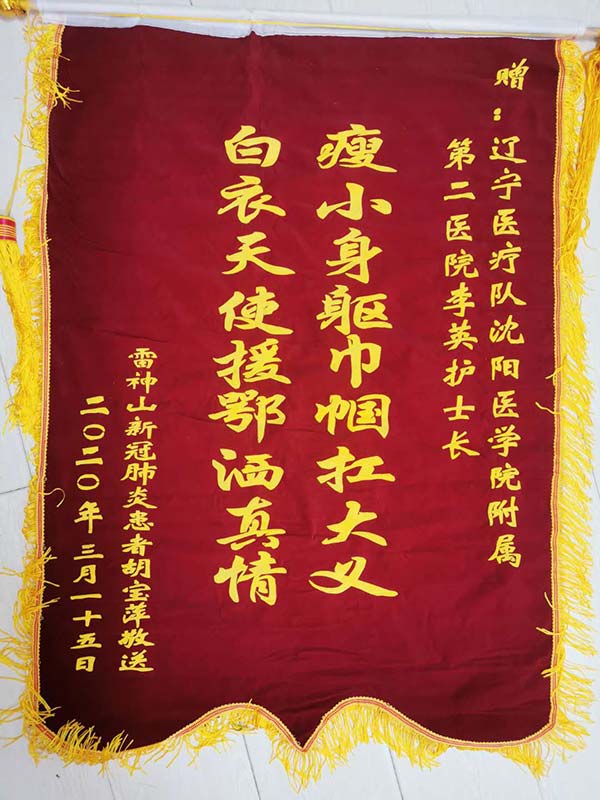 赠：辽宁医疗队沈阳医学院附属
第二医院李英护士长
瘦小身躯巾帼扛大义
白衣天使援鄂洒真情
雷神山新冠肺炎患者胡宝萍敬送
二〇二〇年三月一十五日